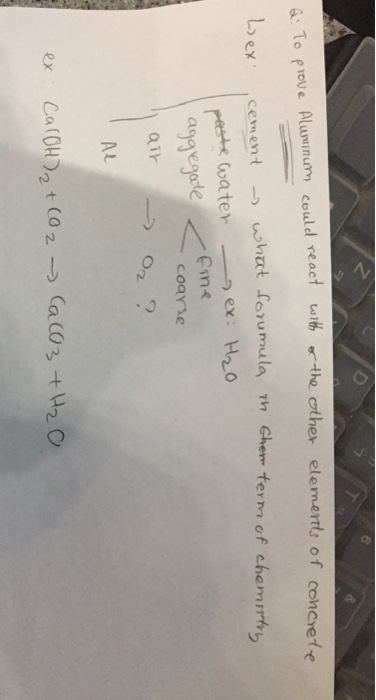 Q: To prove Aluminum could react with the other elements of concrete
↳ ex: cement → what forumula in term of chemistry
water → ex: H2O
aggegate < fine
coarse
air → O2 ?
Al
ex: Ca(OH)2 + CO2 → CaCO3 + H2O